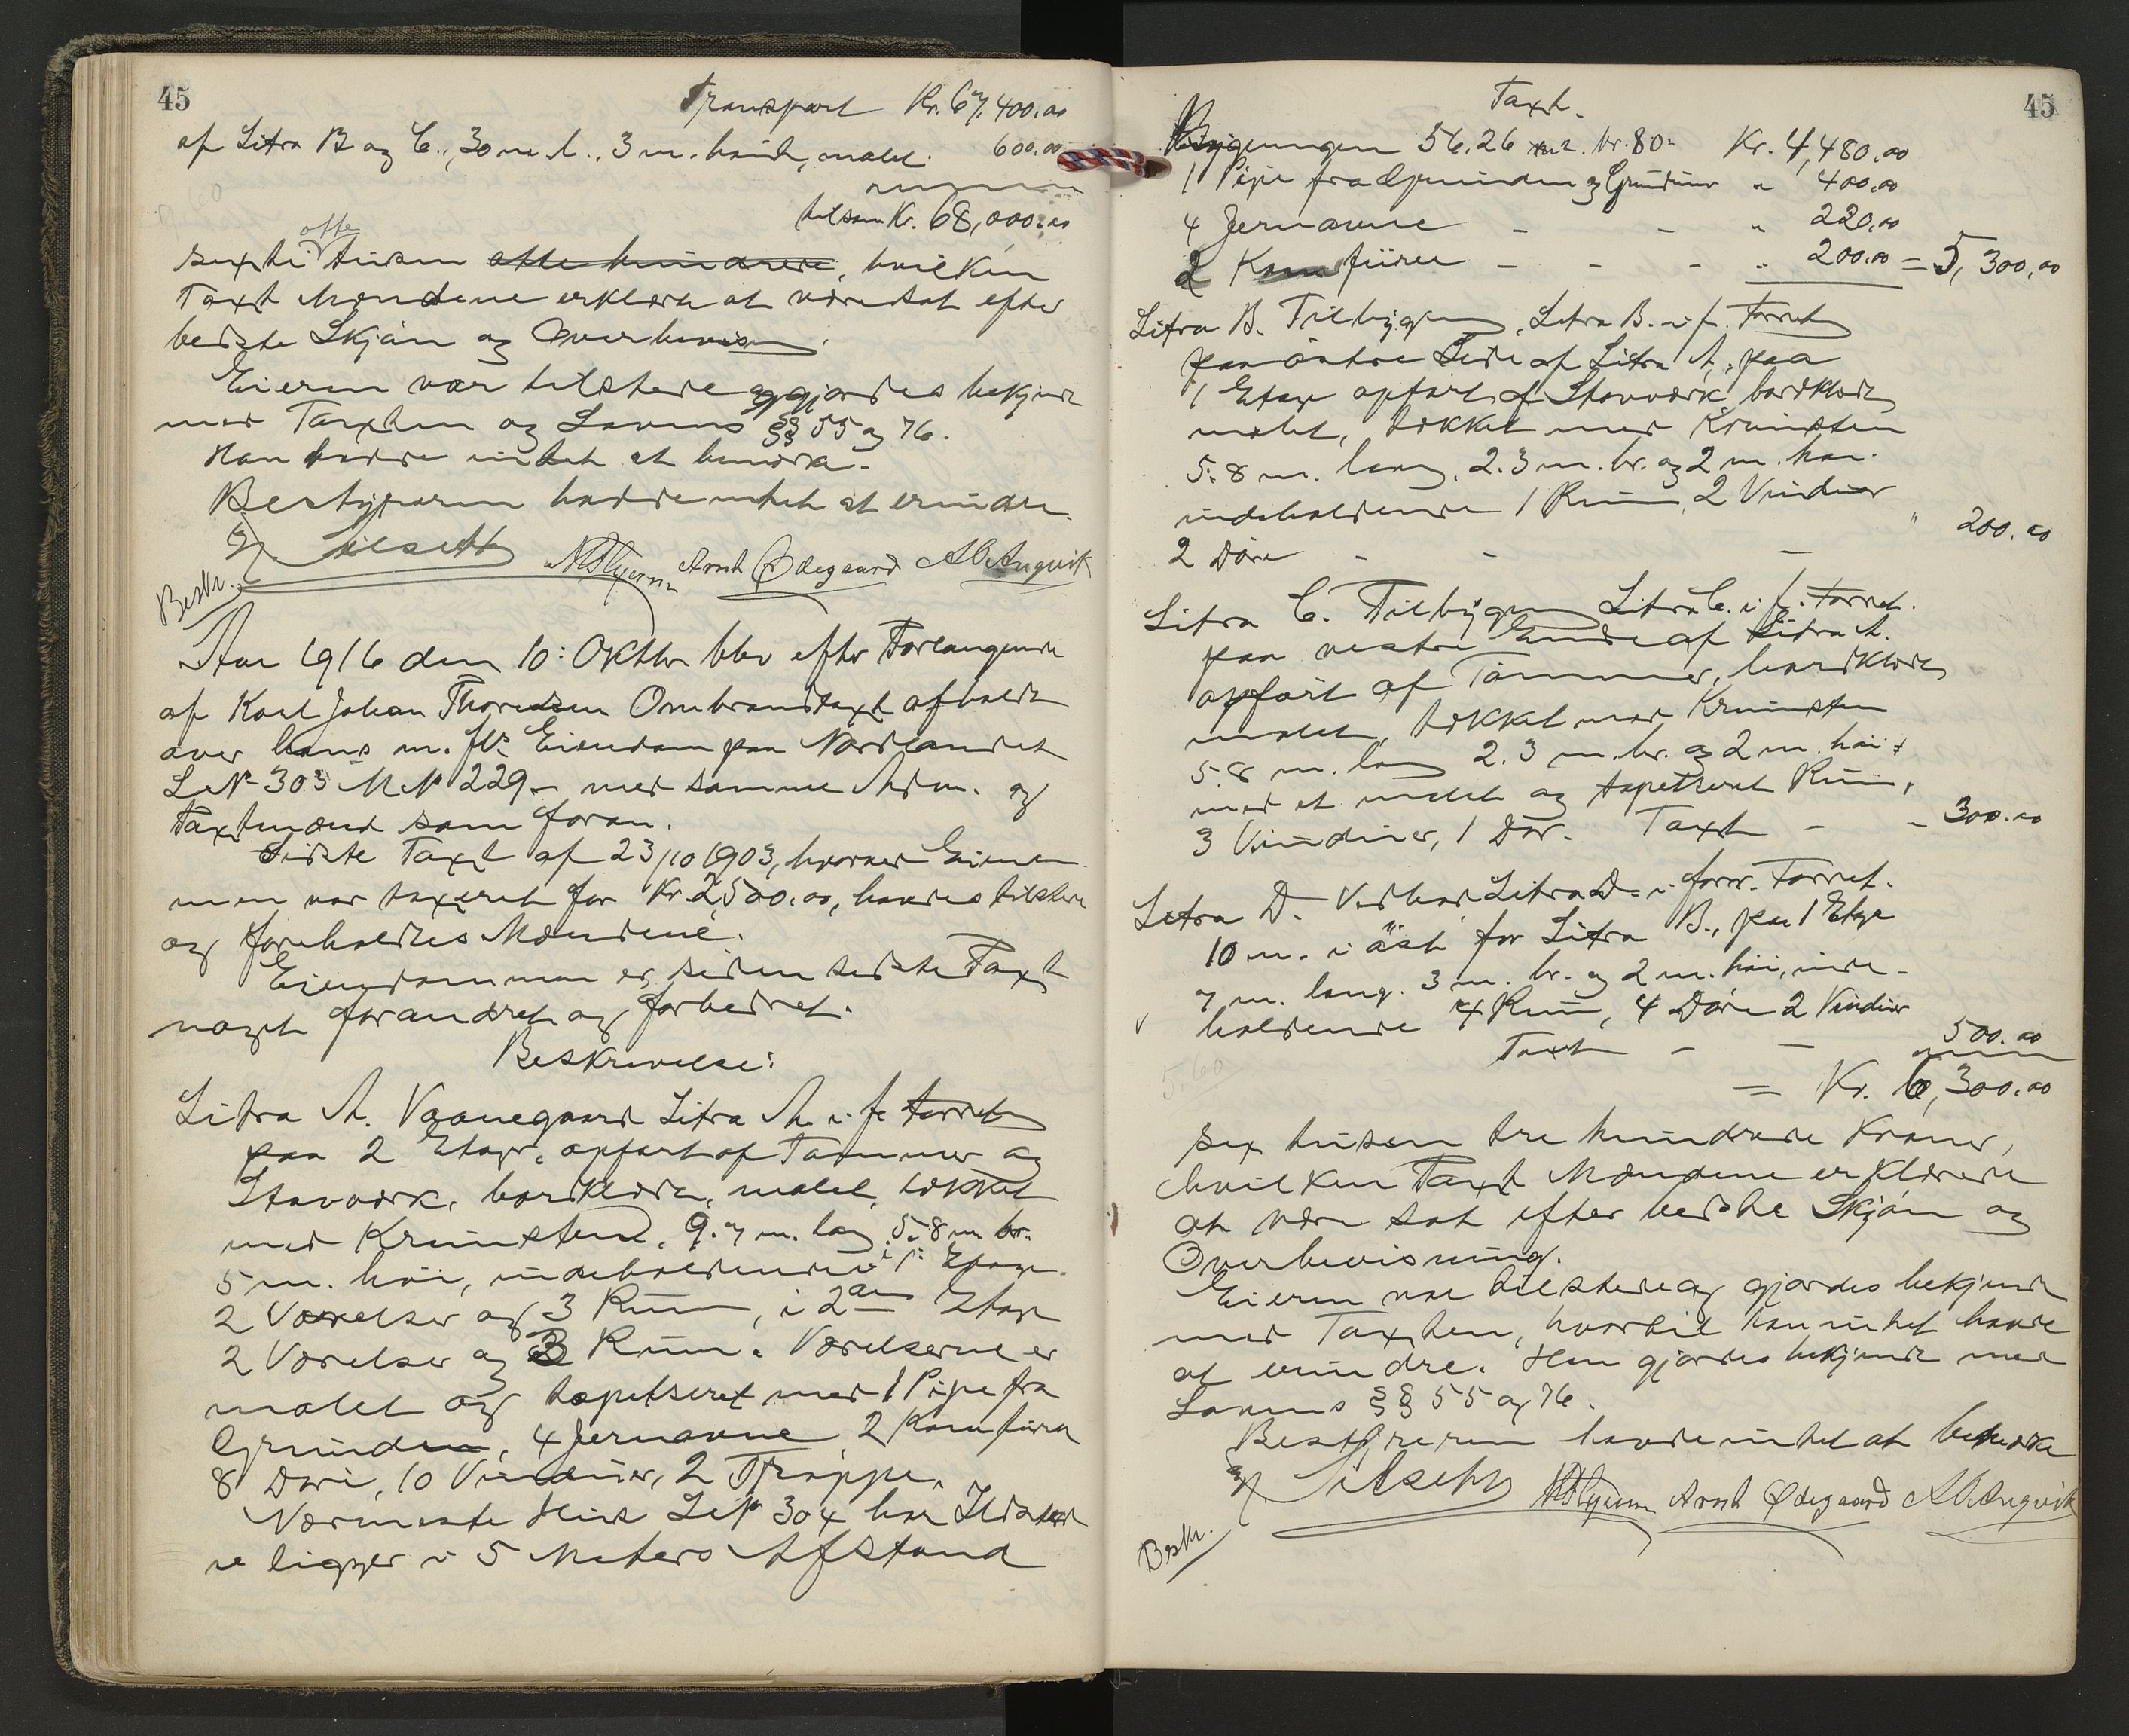 45
Transport Kr. 67,400.00
af Litra B og C., 30 m. l., 3 m. høide, malet. 600.00
tilsam Kr. 68,000.00
otte
sexti tusen otte hundrede, hvilken
Taxt Mændene erklærte at være sat efter
bedste Skjøn og Overbevisn.
Eieren var tilstede og gjordes bekjendt
med Taxten og Lovens §§ 55 og 76.
Han hadde intet at bemærke.
Bestyreren hadde intet at erindre.
Arnt Ødegaard A O Angvik
Beskr.
Aar 1916 den 10: Oktbr blev efter Forlangende
af Karl Johan Thoresen Ombrandtaxt afholdt
over hans m. fl's Eiendom paa Nordlandet
L. N 303 M N 229 - med samme Adm. og
Taxtmænd som foran.
Sidste Taxt af 23/10 1903, hvorved Eiendommen
var taxeret for Kr 2,500.00, havdes tilstede
og foreholdtes Mændene.
Eiendommen er siden sidste Taxt
noget forandret og forbedret.
Beskrivelse:
Litra A. Vaanegaard Litra A. i f. Forret.
paa 2 Etager, opført af Tømmer og
Stavværk, bordklædt, malet, tækket
med Krumsten, 9.7 m. lang 5.8 m br.
5 m. høi, indeholdende i 1: Etage
2 Værelser og 3 Rum, i 2den Etage
2 Værelser og 3 Rum. Værelserne er
malet og tapetseret med 1 Pipe fra
Grunden, 4 Jernovne 2 Komfürer
8 Døre, 10 Vinduer, 2 Trapper.
Nærmeste Hus L N 304 har Ildsted
ligger i 5 Meters Afstand
45
Taxt.
Bygningen 56.26 m2. Kr. 80 - Kr. 4,480.00
1 Pipe fra Grunden og Grundmur " 400.00
4 Jernovne - - " 220.00
2 Komfürer - - - " 200.00 = 5,300.00
Litra B. Tilbygn., Litra B. i f. Forret.
paa østre Side af Litra A., paa
1 Etage opført af Stavværk, bordklædt
malet, tækket med Krumsten
5.8 m. lang, 2.3 m. br. og 2 m. høi
indeholdende 1 Rum, 2 Vinduer
2 Døre - - - " 200.00
Litra C. Tilbygn. Litra C. i f. Forret.
paa vestre Ende af Litra A.
opført af Tømmer, bordklædt
malet, tækket med Krumsten
5.8 m. lang 2.3 m. br. og 2 m. høi
med et malet og tapetseret Rum,
3 Vinduer, 1 Dør. Taxt - - 300.00
Litra D. Vedbod Litra D. i forr. Forret.
10 m. i øst for Litra B., paa 1 Etage
7 m. lang. 3 m. br. og 2 m. høi, inde-
holdende 4 Rum, 4 Døre 2 Vinduer
Taxt - - 500.00
5.60
= Kr. 6,300.00
sex tusen tre hundrede Kroner,
hvilken Taxt Mændene erklærede
at være sat efter bedste Skjøn og
Overbevisning.
Eieren var tilstede og gjordes bekjendt
med Taxten, hvortil han intet havde
at erindre. Han gjordes bekjendt med
Lovens §§ 55 og 76.
Bestyreren havde intet at bemærke
Arnt Ødegaard A O Angvik
Beskr.